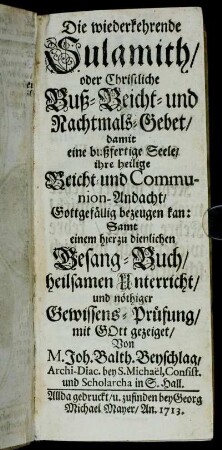 Die wiederkehrende
Sulamith/
oder Christliche
Buß-Beicht-und
Nachtmals-Gebet/
damit
eine bußfertige Seele/
ihre heilige
Beicht und Commu-
nion-Andacht/
Gottgefällig bezeugen kan:
Samt
einem hierzu dienlichen
Gesang-Buch/
heilsamen Unterricht/
und nöthiger
Gewissens-Prüfung/
mit GOtt gezeiget/
Von
M. Joh. Balth. Beyschlag/
Archi-Diac. bey S. Michaël, Consist.
und Scholarcha in S. Hall.
Allda gedruckt/u. zufinden bey Georg
Michael Mayer/An. 1713.